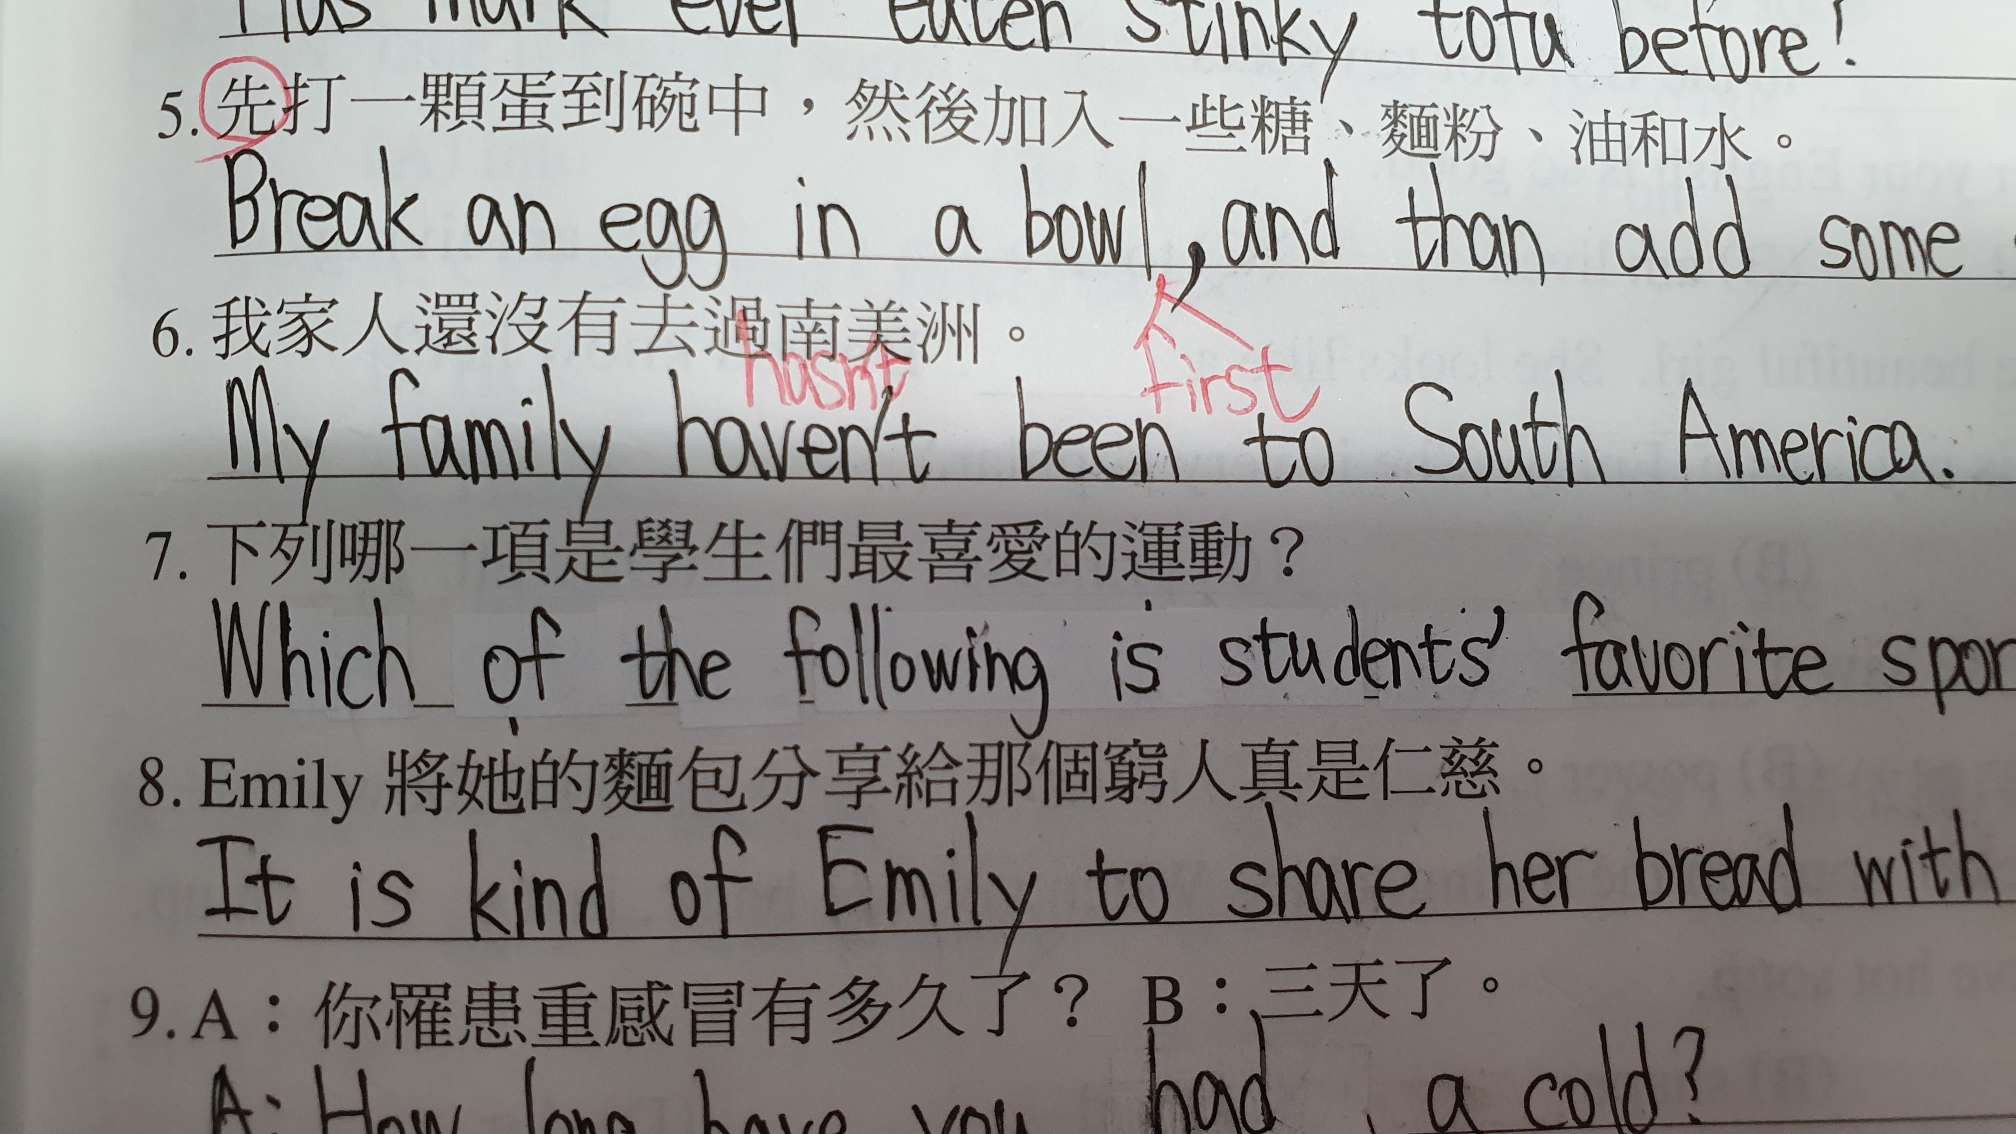 Has Mark ever eaten stinky tofu before?
5. 先打一顆蛋到碗中，然後加入一些糖、麵粉、油和水。
Break an egg in a bowl, and than add some
first
6. 我家人還沒有去過南美洲。
hasn't
My family haven't been to South America.
7. 下列哪一項是學生們最喜愛的運動？
Which of the following is students' favorite spor
8. Emily 將她的麵包分享給那個窮人真是仁慈。
It is kind of Emily to share her bread with
9. A：你罹患重感冒有多久了？ B：三天了。
A: How long have you had a cold?